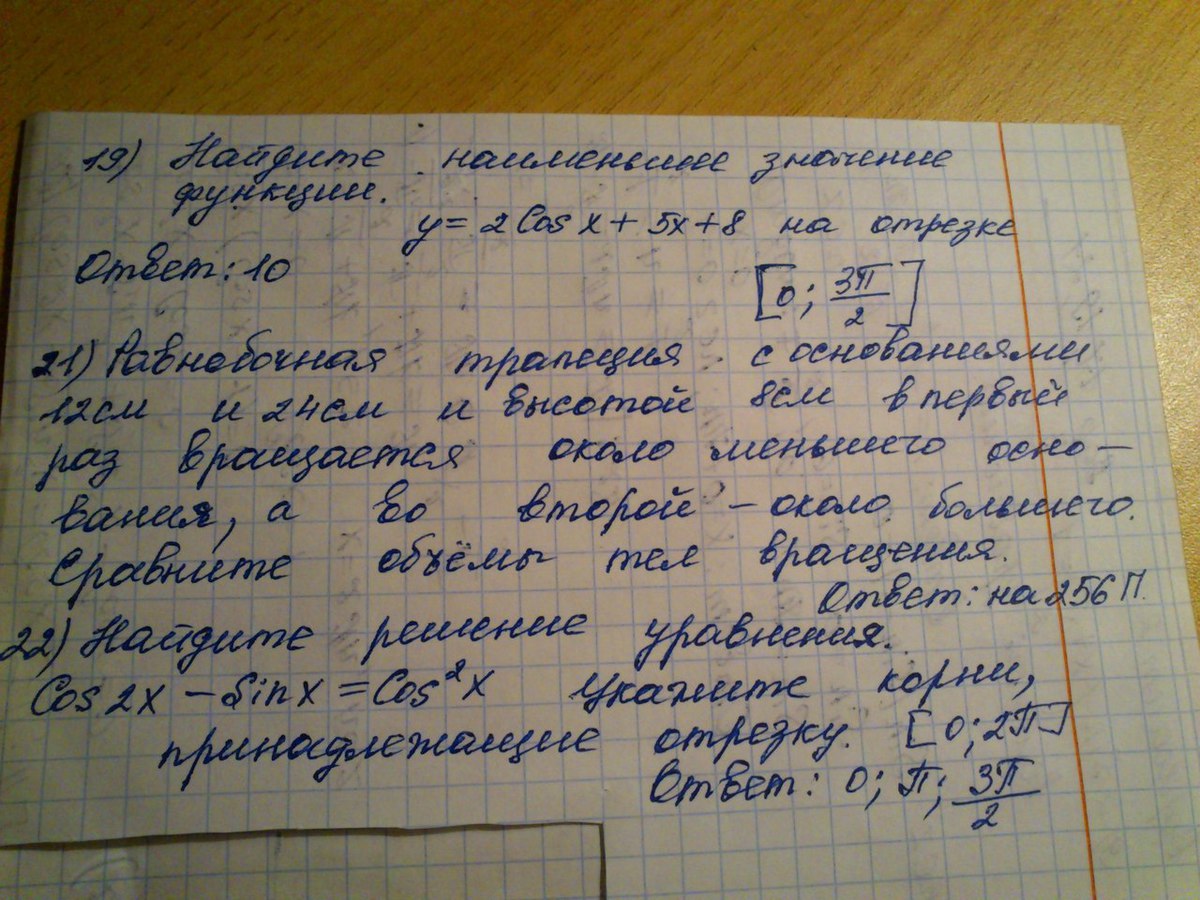 19) Найдите наименьшее значение
функции.
y = 2 Cos x + 5x + 8 на отрезке
Ответ: 10
[0; 3π/2]
21) Равнобочная трапеция с основаниями
12см и 24см и высотой 8см в первый
раз вращается около меньшего осно-
вания, а во второй – около большего.
Сравните объёмы тел вращения.
Ответ: на 256 П.
22) Найдите решение уравнения.
Cos 2x – Sin x = Cos²x Укажите корни,
принадлежащие отрезку. [0; 2П]
Ответ: 0; П; 3П/2